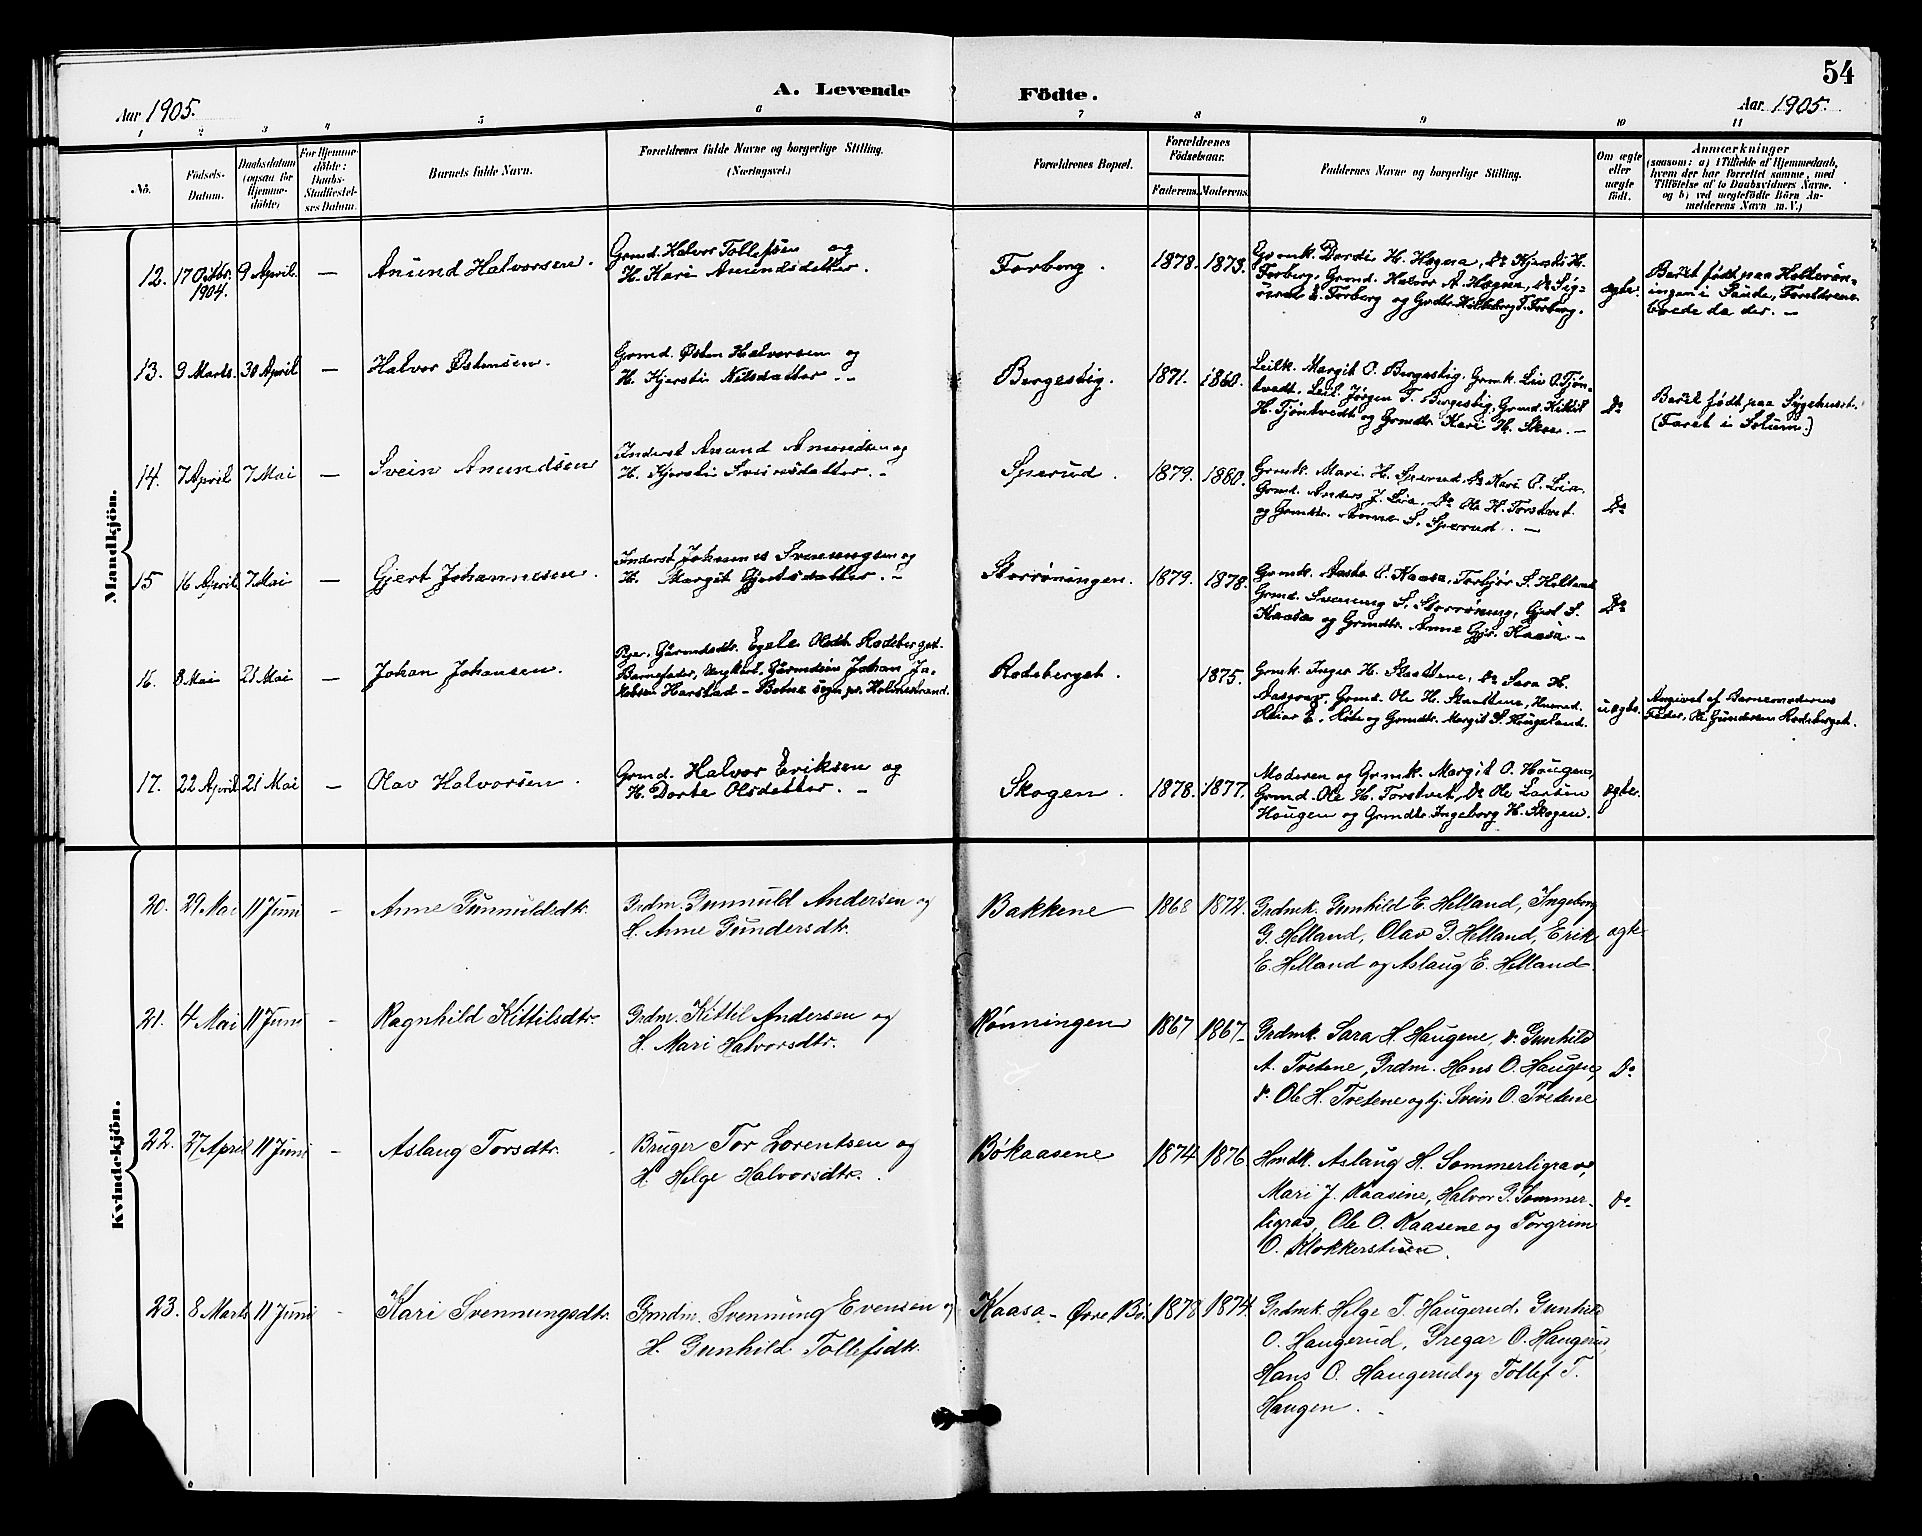 54
A. Levende Födte.
Aar 1905.
Aar 1905.
1 2 3 4 5 6 7 8 9 10 11
No.
Födsels-Datum.
Daabsdatum (ogsaa for Hjemme-döbte)
For Hjemme-döbte: Daabs-Stadfæstel-ses Datum.
Barnets fulde Navn.
Forældrenes fulde Navne og borgerlige Stilling.
(Næringsvei.)
Forældrenes Bopæl.
Forældrenes Födselsaar.
Faderens. Moderens.
Faddernes Navne og borgerlige Stilling.
Om ægte eller uægte födt.
Anmærkninger
(saasom: a) i Tilfælde af Hjemmedaab,
hvem der har forrettet samme, med
Tilföielse af to Daabsvidners Navne.
og b) ved uægtefödte Börn An-
melderens Navn m. V.)
Mandkjön.
12. 17 Oktbr. 1904. 9 April. — Anund Halvorsen.
Grmd. Halvor Tollefsen og
H. Kari Anundsdatter.
Forberg. 1878. 1873.
Grmk. Dordi H. Hogna, Do Kjersti H.
Forberg, Grmd. Halvor A. Hogna, Do Sig-
urd E. Forberg og Grdtr. Hilleborg T. Forberg.
ægte.
Barnet født paa Holterøn-
ingen i Saude, Forældrene
boede da der. —
13. 9 Marts. 30 April — Halvor Østensen.
Grmd. Østen Halvorsen og
H. Kjersti Nilsdatter. —
Bergestig. 1871. 1860.
Leilk. Margit O. Bergestig, Grmk. Liv O. Tjøn-
tvedt, Leil. Jørgen T. Bergestig, Grmd. Kittil
H. Tjöntvedt og Grmdtr. Kari H. Skoe. —
Do
Barnet født paa Sygehuset.
(Faret i Solum.)
14. 7 April 7 Mai — Svein Anundsen
Inderst Anund Amundsen og
H. Kjersti Sveinsdatter. —
Sperud. 1879. 1880.
Grmk. Mari H. Sperud, Do Kari O. Lia.
Grmd. Anders J. Lia, Do Ole H. Torstvet
og Grmdtr. Anne S. Sperud. —
Do
15 16 April 7 Mai — Gjert Johannesen.
Inderst Johannes Svennungsen og
H. Margit Gjertsdatter. —
Storröningen. 1879. 1878.
Grmk. Aaste O. Kaasa, Torbjør S. Helland
Grmd. Svenung S. Storrøning, Gjert S.
Kaasa og Grmdtr. Anne Gjs. Kaasa —
Do
16. 8 Mai 21 Mai — Johan Johansen.
Pige, Gaardmdtr. Egele Olsdtr. Rodeberget.
Barnefader, Ungkarl, Gaardmsön Johan Ja-
kobsen Harstad — Botne sogn pr. Holmestrand.
Rodeberget. 1875.
Grmk. Inger H. Staastene, Do Sara H.
Aasgrav, Grmd. Ole H. Staastene, Husmd.
Reiar E. Röte og Grmdtr. Margit S. Haugeland.
uægte.
Angivet af Barnemoderens
Fader, Ole Gundersen Rodeberget.
17. 22 April 21 Mai — Olav Halvorsen.
Grmd. Halvor Eriksen og
H. Dorte Olsdatter. —
Skogen. 1878. 1877.
Moderen og Grmk. Margit O. Haugen,
Grmd. Ole H. Torstvet, Do Ole Larsen
Haugen og Grmdtr. Ingeborg H. Skogen.
ægte.
Kvindekjön.
20. 29 Mai 11 Juni - Anne Gunnuldsdtr.
Grdm. Gunnuld Andersen og
H. Anne Gundersdtr.
Bakkene 1868 1872.
Grdmk. Gunhild E. Helland, Ingeborg
G. Helland, Olav G. Helland, Erik
E. Helland og Aslaug E. Helland.
ægte.
21. 4 Mai 11 Juni - Ragnhild Kittilsdtr.
Grdm. Kittil Andersen og
H. Mari Halvorsdtr.
Rönningen 1867 1867.
Grdmk. Sara H. Haugene, do Gunhild
A. Tvetene, Grdm. Hans O. Haugen,
do Ole H. Tvetene og tj. Svein O. Tvetene
Do
22. 27 April 11 Juni - Aslaug Torsdtr.
Bruger Tor Lorentsen og
H. Helge Halvorsdtr.
Bökaasene 1874 1876
Hmdk. Aslaug H. Sommerligrav,
Mari J. Kaasine, Halvor G. Sommer-
ligrav, Ole O. Kaasene og Torgrim
O. Klokkerstuen.
do
23. 8 Marts 11 Juni - Kari Svennungsdtr.
Grmdm. Svennung Evensen og
H. Gunhild Tollefsdtr.
Kaasa - Øvre Bö. 1878 1874.
Grdmk. Helge T. Haugerud, Gunhild
O. Haugerud, Gregar O. Haugerud,
Hans O. Haugerud og Tollef T.
Haugen.